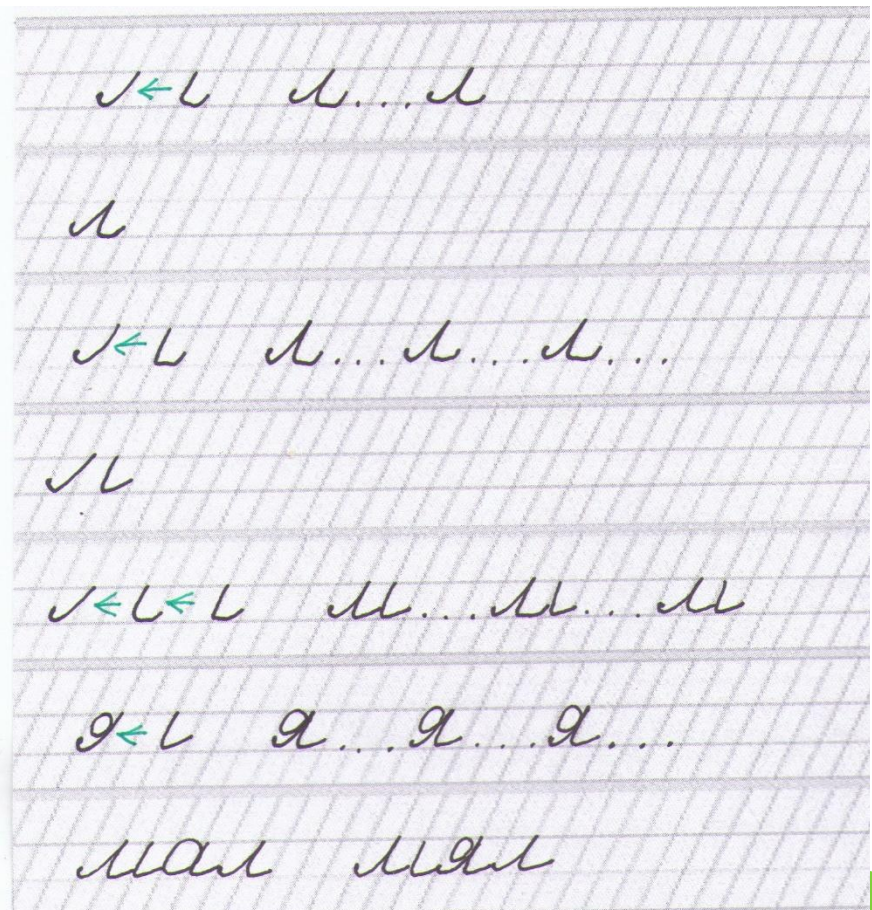 л...л
л
л...л...л...
м...м...м
я...я...я...
мал мял